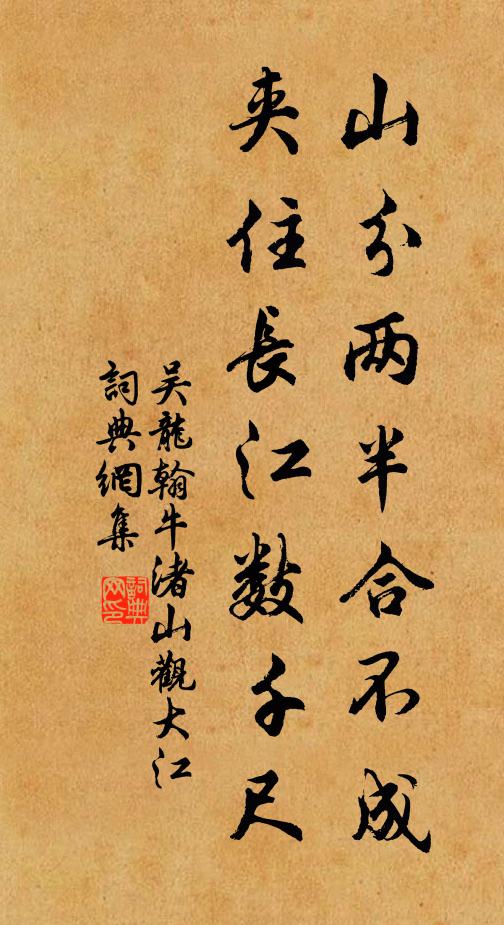 山分两半合不成
夹住長江数千尺
吴龍翰牛渚山觀大江
詞典網集
詞典網印